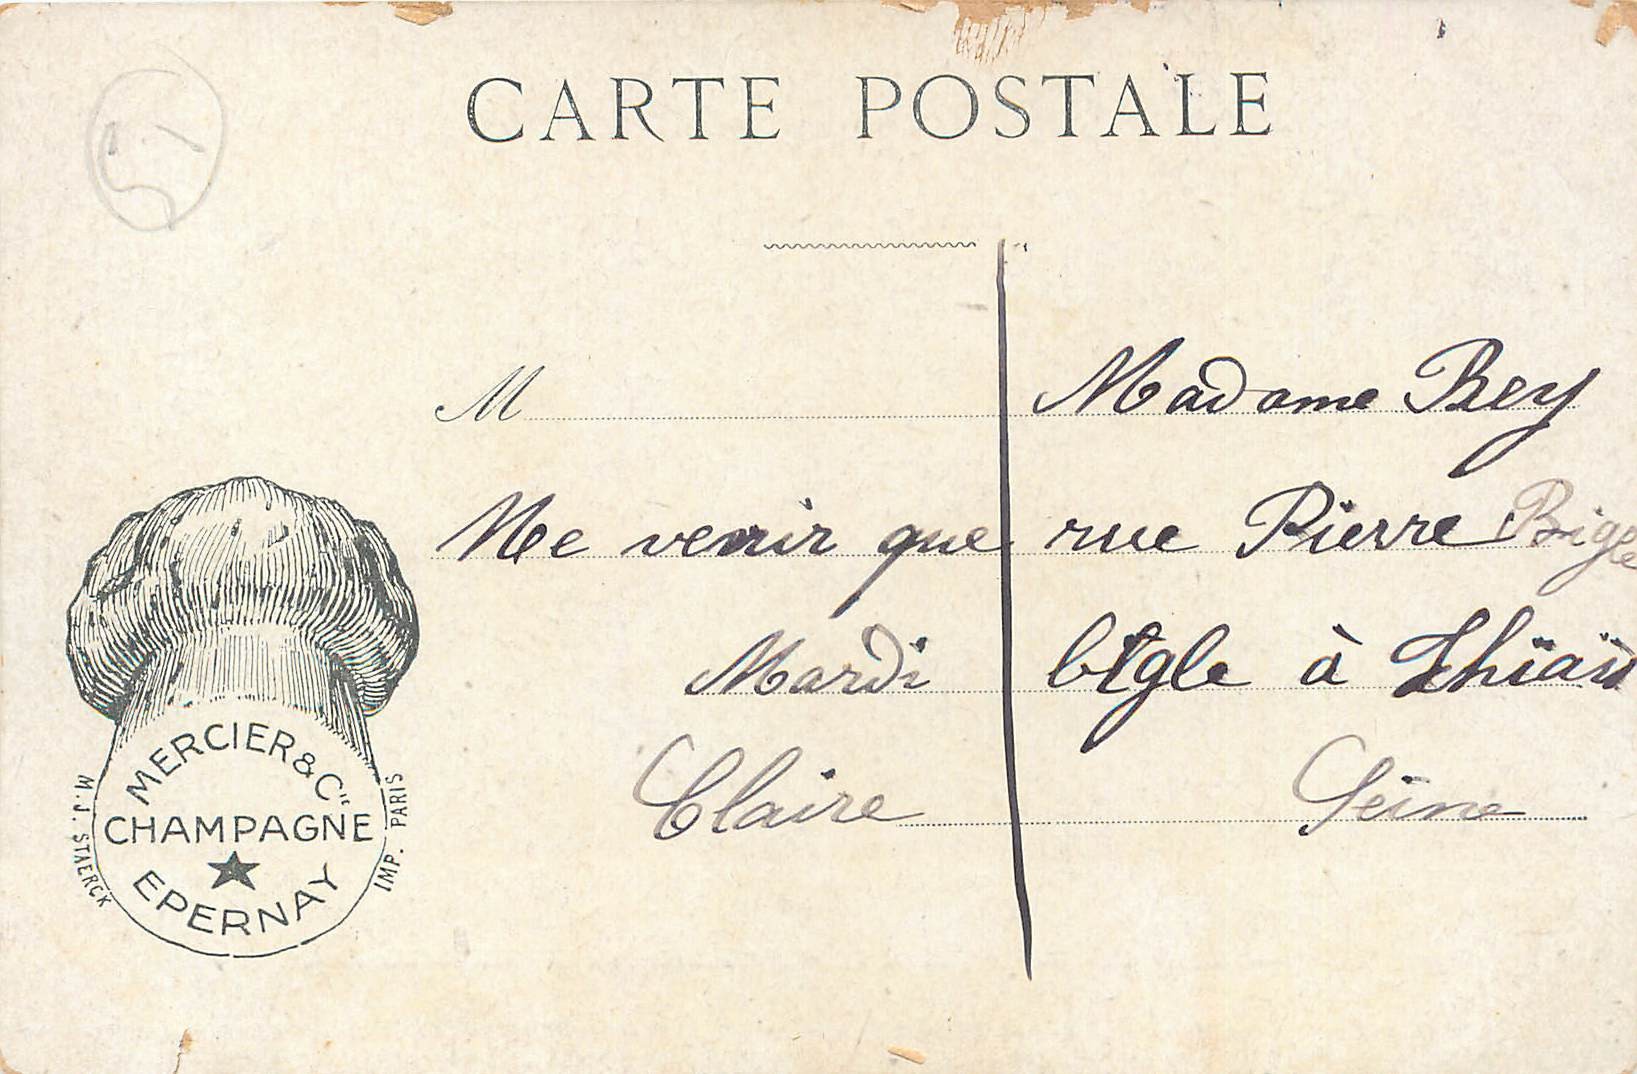 CARTE POSTALE
M
Me venir que
Mardi
Claire
Madame Bey
rue Pierre Bigle
bigle à Thiais
Seine
MERCIER & Cie
CHAMPAGNE
EPERNAY
M. J. STAERCK
IMP. PARIS